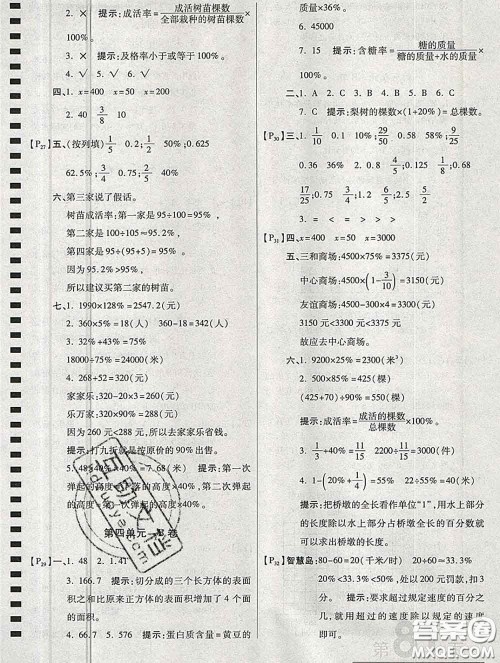 2. ×　提示:成活率=成活树苗棵数/全部栽种的树苗棵数×
100%。
3. ×　提示:及格率小于或等于100%。
4. √　5. √　6. √
四、1. x=400　x=50　x=200
2. 40　3/8　10
【P27】五、(按列填)1/5　0.2;1/2　50%;0.625
62.5%;3/4　75%;0.4　2/5
六、第三家说了假话。
树苗成活率:第一家是95÷100=95%。
第二家是100÷105≈95.2%。
第四家是95÷(95+5)=95%。
因为95.2%>95%。
所以建议买第二家的树苗。
七、1. 1990×128%=2547.2(元)
2. 360×5%=18(人)　360-18=342(人)
3. 32%+43%=75%
18000÷75%=24000(米)
4. 268+52=320(元)
家家乐:320-20×3=260(元)
乐万家:320×90%=288(元)
因为260元<288元,所以去家家乐省钱。
提示:打九折也就是按原价的90%出售。
5. 48×40%×40%=7.68(米)　提示:第一次
弹起的高度=下落的高度×40%,第二次弹
起的高度=第一次弹起的高度×40%。
第四单元　B卷
【P29】一、1. 48　2. 1.41
3. 166.7　提示:切分成的三个长方体的表面
积之和比原来正方体的表面积增加了4个面
的面积。
4. 66.7　5. 576　提示:蛋白质含量=黄豆的
质量×36%。
6. 45000
7. 15　提示:含糖率=糖的质量/(糖的质量+水的质量)×
100%。
二、1. A　2. B　3. C　4. B
5. C　提示:梨树的棵数×(1+20%)=总棵数。
【P30】三、1. 1/10　0.1　10%;29/50　0.58　58%;3/8
0.36　36%　2. 0.68　17/25;0.15　3/20;
0.75　3/4;1.25　5/4
3. =　=　>　<　>　>
【P31】四、x=400　x=50　x=3000
五、三和商场:4500×75%=3375(元)
中心商场:4500×(1-3/10)=3150(元)
友谊商场:4500-300×4=3300(元)
3150元<3300元<3375元
故应去中心商场。
六、1. 9200×25%=2300(米³)
2. 500×90%=450(棵)
500×97%=485(棵)
提示:成活率=成活的棵数/总棵数×100%。
3. 1/3+40%=11/15　1100÷11/15=1500(米)
4. 1-2/5-40%=20%　20÷20%=100(米)
提示:把桥墩的全长看作单位“1”,用露出水面
的长度除以露出水面的长度占桥墩全长的百分数就
可以求出桥墩的长度。
【P32】智慧岛:80-60=20(千米/时)　20÷60≈33.3%
20%<33.3%<50%,所以处200元罚款,扣3
分。提示:要求超过规定速度的百分之
几,就用超过的速度除以规定的速度即可。